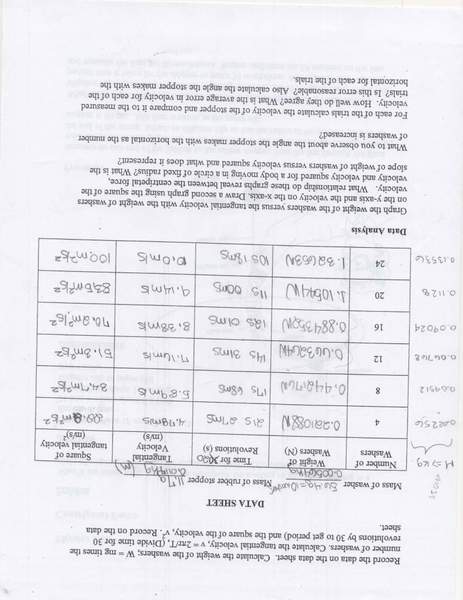 Record the data on the data sheet. Calculate the weight of the washers; W = mg times the
number of washers. Calculate the tangential velocity, v = 2πr/T, (Divide time for 30
revolutions by 30 to get period) and the square of the velocity, v². Record on the data
sheet.
DATA SHEET
Mass of washer 0.00564kg Mass of rubber stopper 11.7g
0.0117kg (m)
Number of Washers Weight of Washers (N) Time for 20 Revolutions (s) Tangential Velocity (m/s) Square of tangential velocity (m/s)²
0.02256 4 0.22108N 21s 27ms 4.78m/s
0.04512 8 0.44217N 17s 68ms 5.89m/s 34.7m²/s²
0.06768 12 0.66326N 14s 31ms 7.16m/s 51.3m²/s²
0.09024 16 0.88435N 12s 01ms 8.38m/s 70.2m²/s²
0.1128 20 1.10544N 11s 00ms 9.14m/s 83.5m²/s²
0.13536 24 1.32653N 10s 18ms 10.0m/s 100m²/s²
Data Analysis
Graph the weight of the washers versus the tangential velocity with the weight of washers
on the y-axis and the velocity on the x-axis. Draw a second graph using the square of the
velocity. What relationship do these graphs reveal between the centripetal force,
velocity and velocity squared for a body moving in a circle of fixed radius? What is the
slope of weight of washers versus velocity squared and what does it represent?
What to you observe about the angle the stopper makes with the horizontal as the number
of washers is increased?
For each of the trials calculate the velocity of the stopper and compare it to the measured
velocity. How well do they agree? What is the average error in velocity for each of the
trials? Is this error reasonable? Also calculate the angle the stopper makes with the
horizontal for each of the trials.